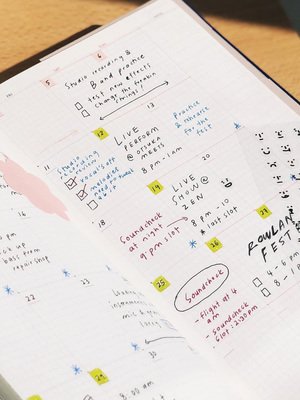 5
6
Studio recording &
Band practice
test new effects
change the freakin
strings!
12
13
LIVE
PERFORM
@ OTSUKA
MEETS
8 pm - 1 am
Practice
& rehearse
for the
fest
11
Studio
recording
review
vocals/gpr
melodies
18
19
20
LIVE
SHOW @
ZEN
8 pm - 10
*last slot
Soundcheck
at night
9 pm slot
26
27
ROWLAN
FEST
4 - 6 pm
8 -
25
Soundcheck
- flight at 4
am
- soundcheck
slot: 2:30 pm
up
bass from
repair shop
22
23
mic &
30
29
8:00 am